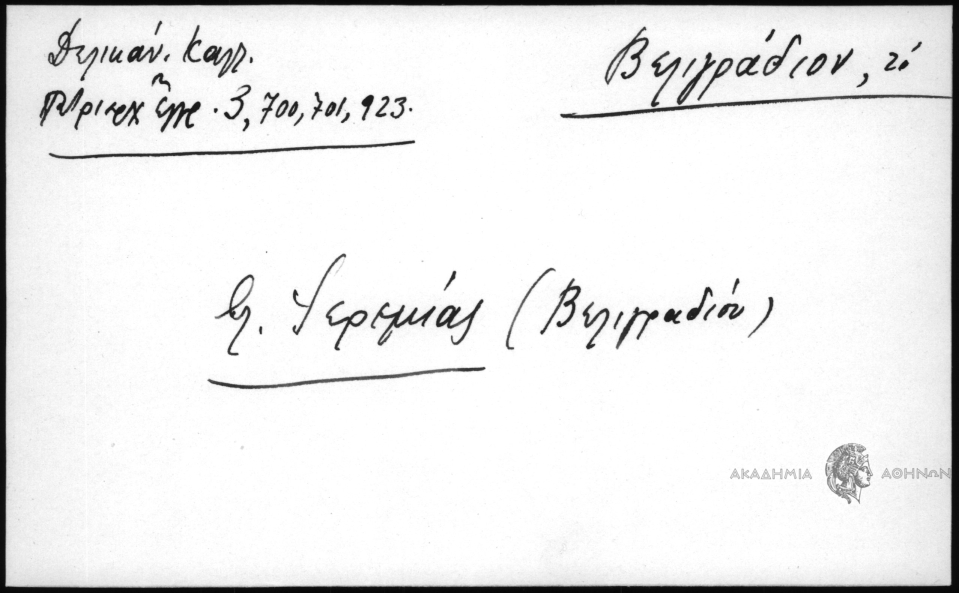 Δελικάν. Καλλ.
Πατριαρχ ἔγγρ. 3, 700, 701, 923.
Βελιγράδιον, τό
βλ. Ἱερεμίας (Βελιγραδίου)
ΑΚΑΔΗΜΙΑ ΑΘΗΝΩΝ